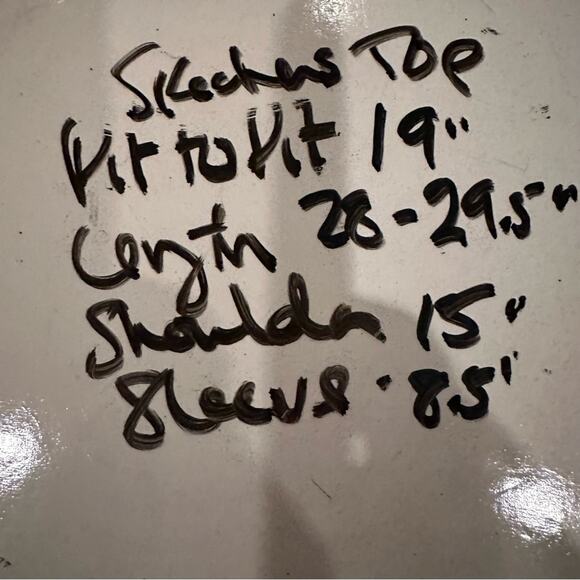 Skechers Top
Pit to Pit 19"
Length 28-29.5"
Shoulder 15"
Sleeve - 8.5"